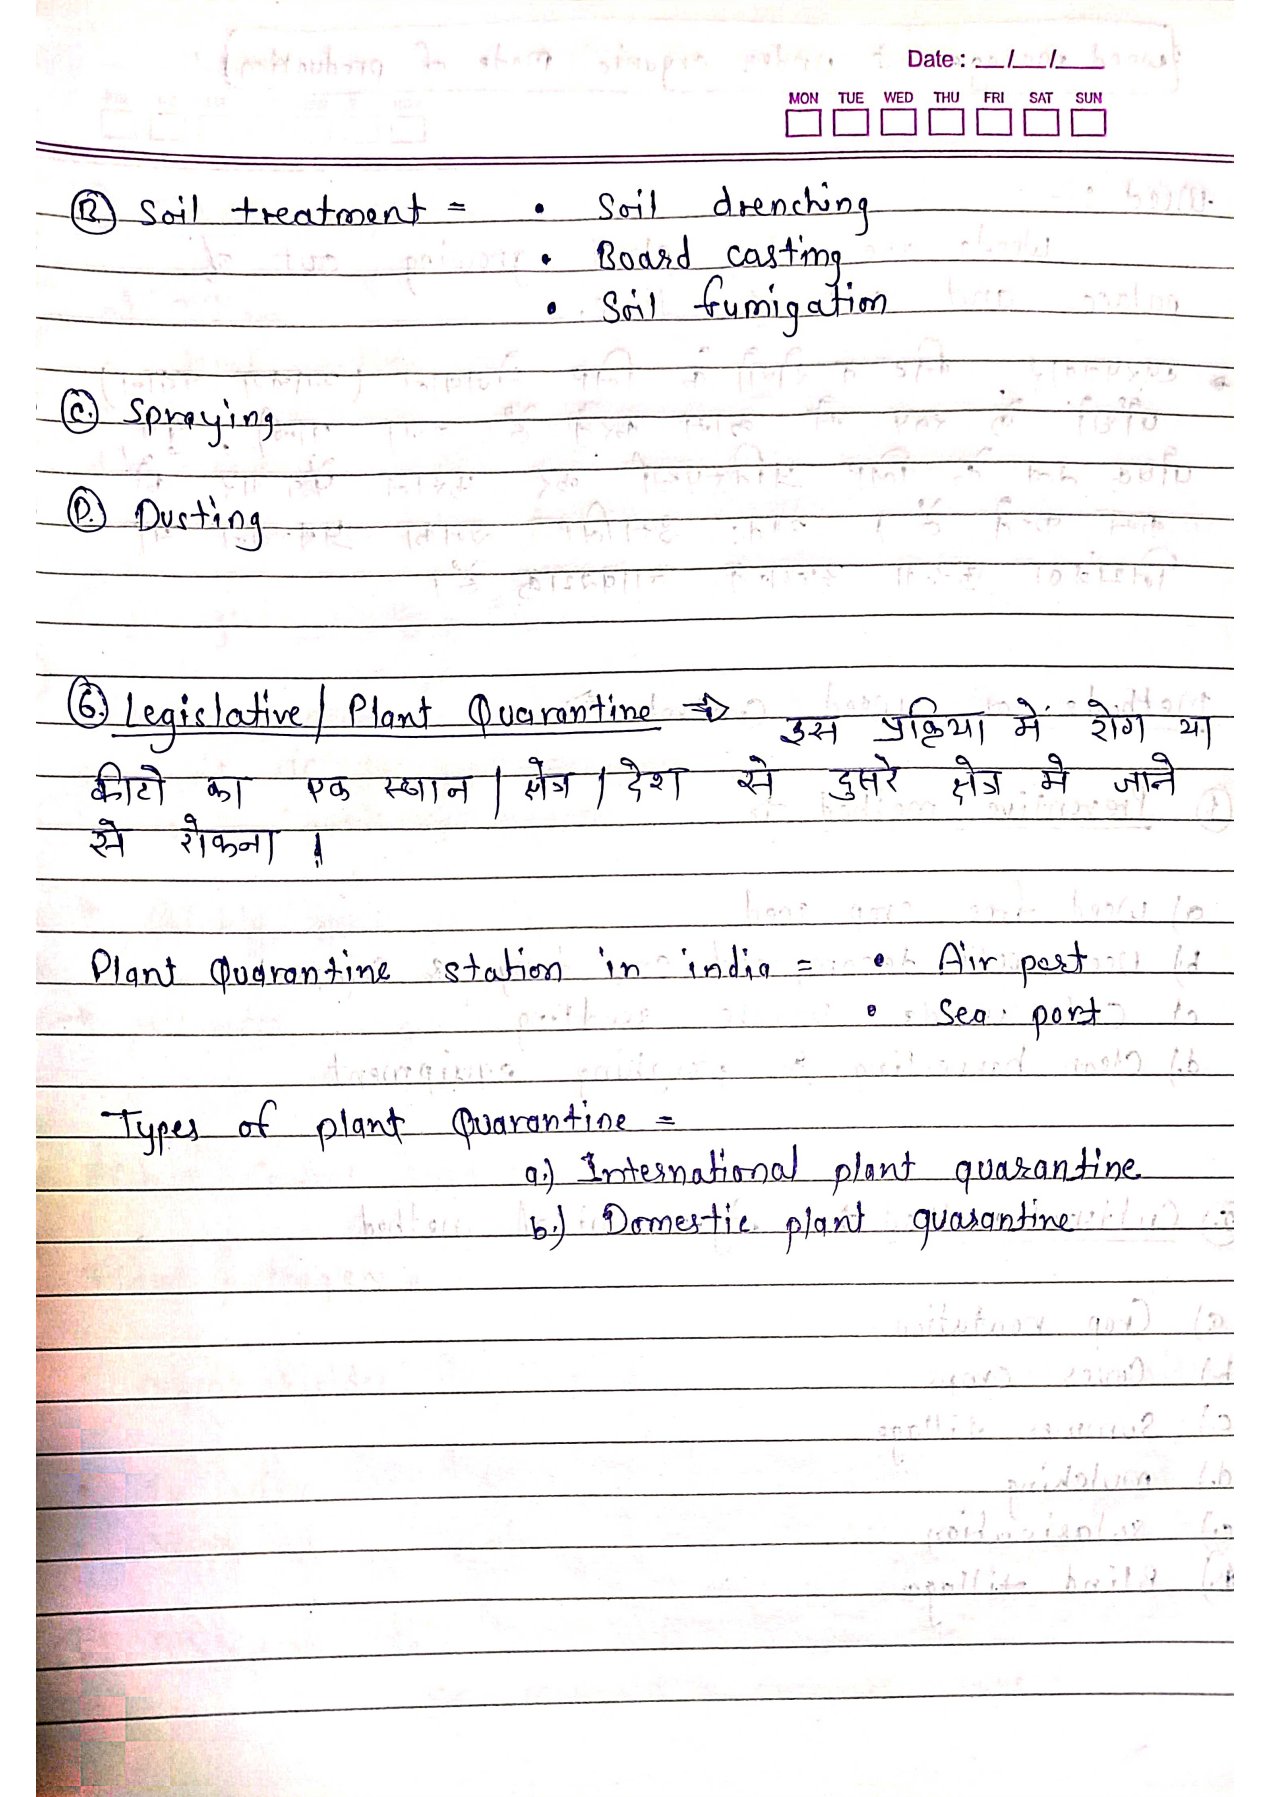 Date : __/__/__
MON TUE WED THU FRI SAT SUN
B. Soil treatment = • Soil drenching
• Board casting
• Soil fumigation
C. Spraying
D. Dusting
6. Legislative / Plant Quarantine ⇒ इस प्रक्रिया में रोग या
कीटो का एक स्थान / क्षेत्र / देश से दुसरे क्षेत्र मे जाने
से रोकना ।
Plant Quarantine station in india = • Air port
• Sea port
Types of plant Quarantine =
a.) International plant quarantine
b.) Domestic plant quarantine